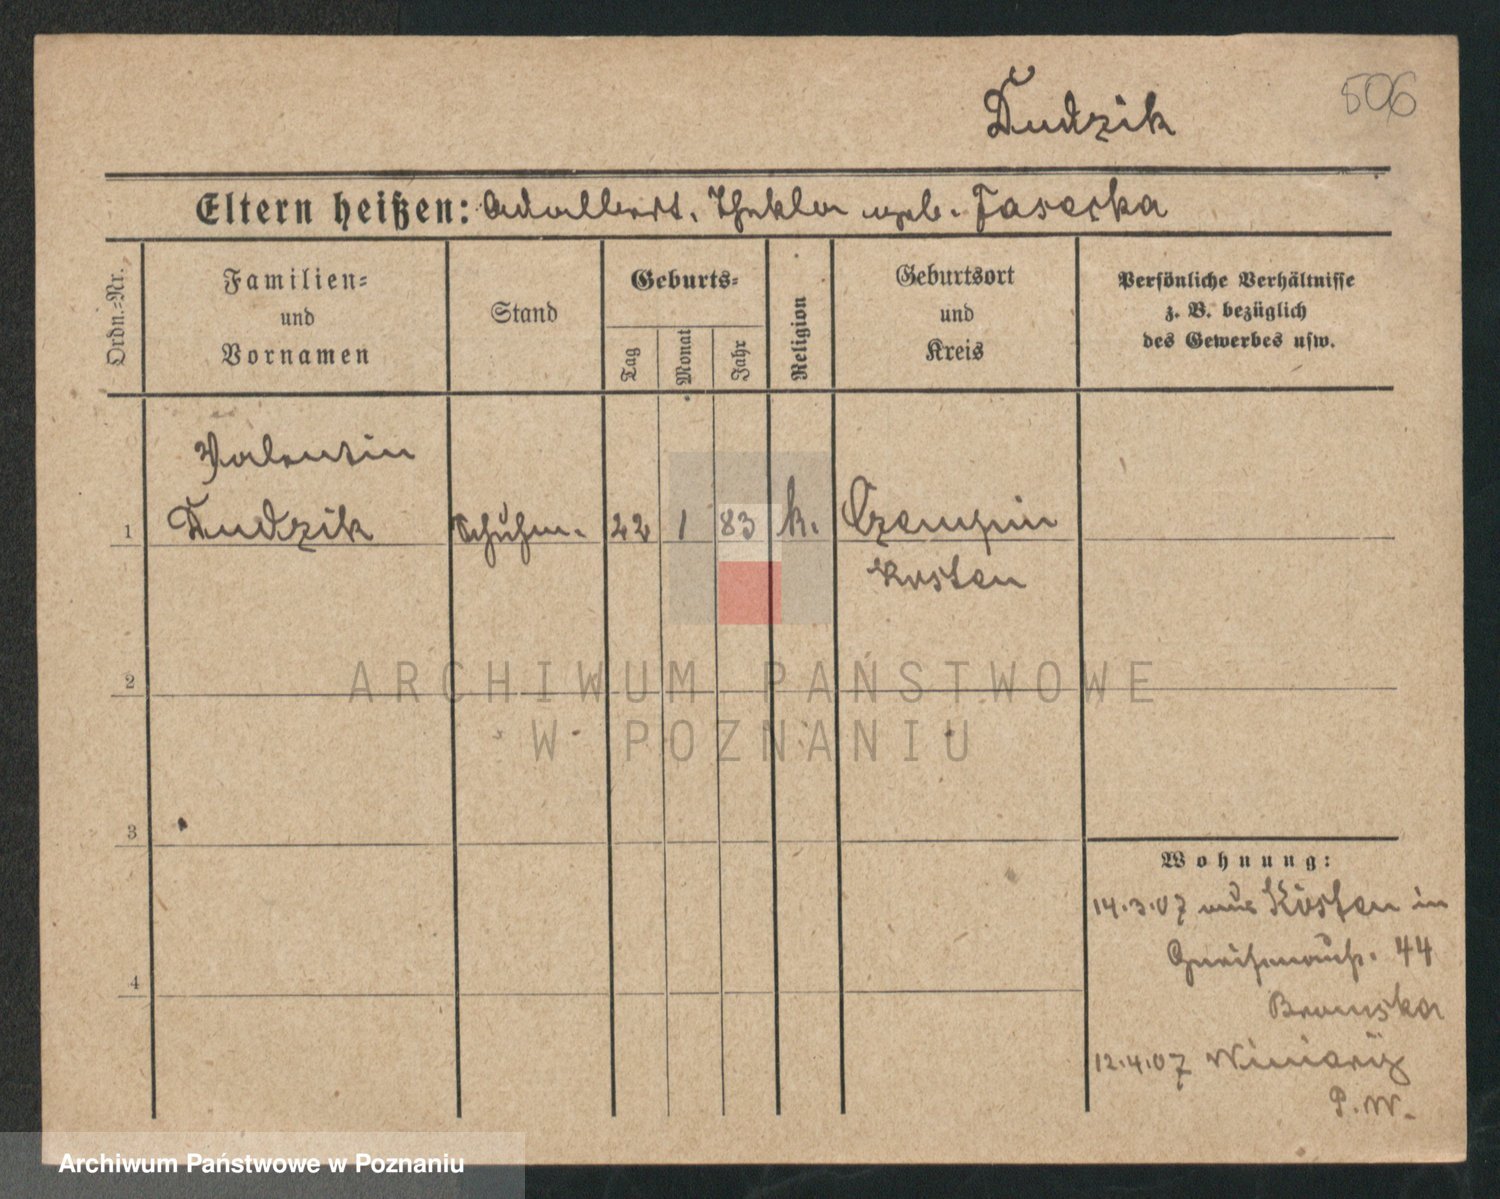 Dudzik
506
Eltern heißen: Adalbert. Thekla geb. Jasecka
Ordn.-Nr.
Familien-
und
Vornamen
Stand
Geburts-
Tag
Monat
Jahr
Religion
Geburtsort
und
Kreis
Persönliche Verhältnisse
z. B. bezüglich
des Gewerbes usw.
Valentin
1 Dudzik Schuhm. 22 1 83 k. Czempin
Kosten
2
ARCHIWUM PAŃSTWOWE
W POZNANIU
3
Wohnung:
14.3.07 aus Kosten in
Gneisenaustr. 44
4
Bromska
12.4.07 Winiary
P.W.
Archiwum Państwowe w Poznaniu